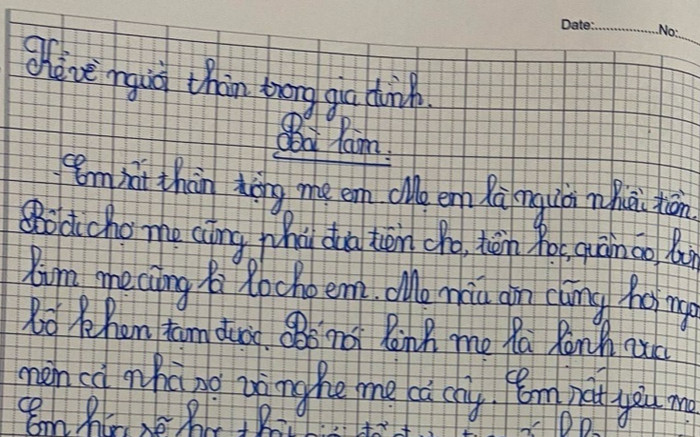 Date:..................No:......
Kể về người thân trong gia đình.
Bài làm:
Em rất thần tượng mẹ em. Mẹ em là người nhiều tiền.
Bố đi chợ mẹ cũng phải đưa tiền cho, tiền học, quần áo,
lùm mẹ cũng là lo cho em. Mẹ nấu ăn cũng hơi
bố khen tạm được. Bố nói lệnh mẹ là lệnh vua
nên cả nhà sợ và nghe mẹ cả cây. Em rất yêu mẹ
Em hứa sẽ học